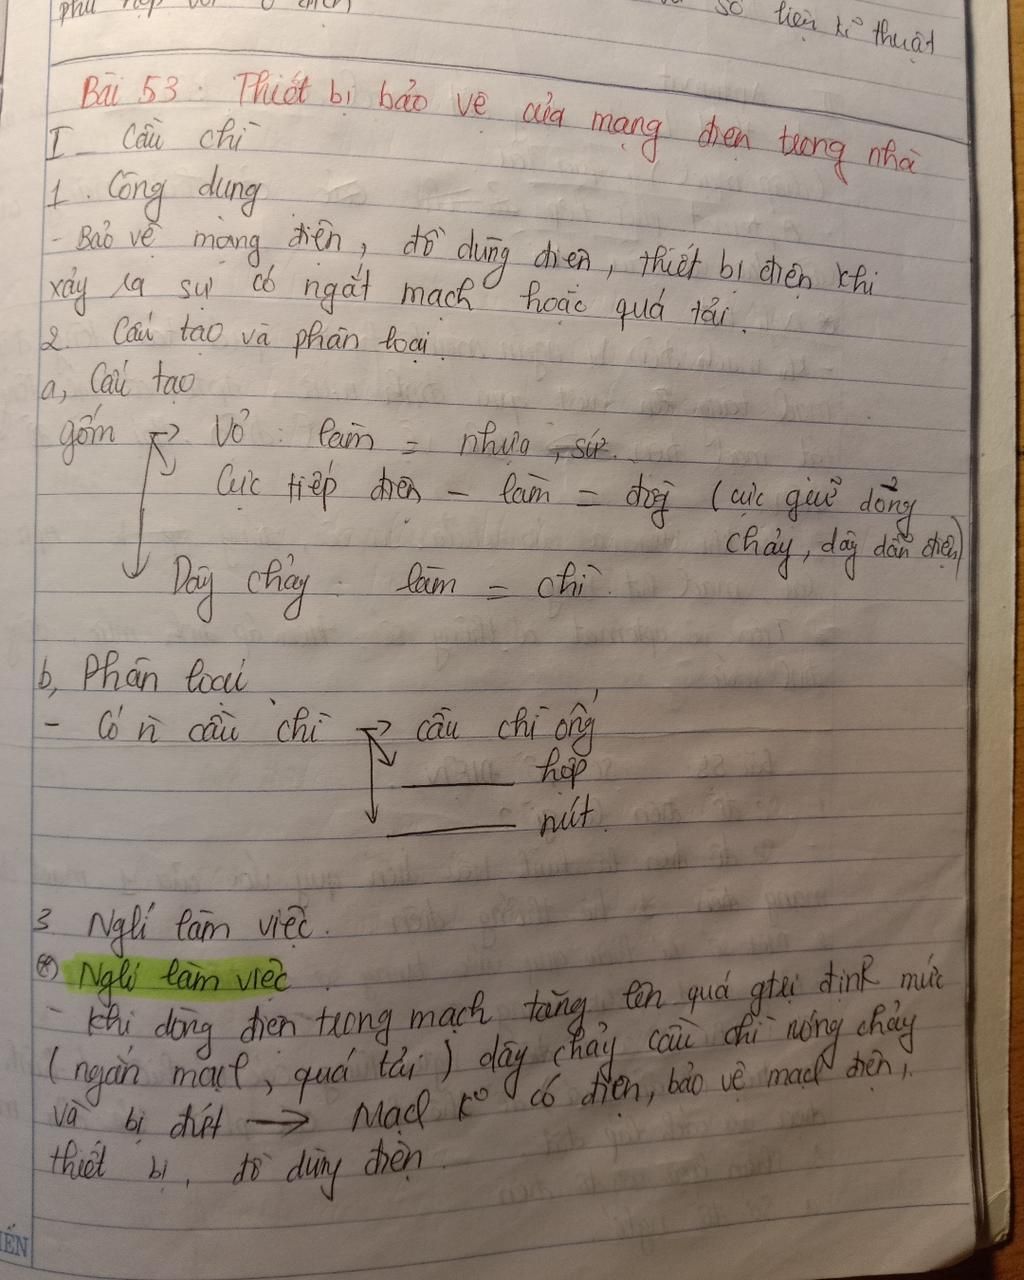 phù hợp với số liệu kĩ thuật
Bài 53: Thiết bị bảo vệ của mạng điện trong nhà
I Cầu chì
1. Công dụng
- Bảo vệ mạng điện, đồ dùng điện, thiết bị điện khi
xảy ra sự cố ngắt mạch hoặc quá tải.
2. Cấu tạo và phân loại.
a, Cấu tạo
gồm Vỏ: làm = nhựa, sứ.
Cực tiếp điện - làm = đồg (cực giữ
chảy, dây dẫn điện)
Dây chảy: làm = chì.
b, Phân loại
- Có n cầu chì cầu chì ống
hộp
nút.
3 Nglí làm việc.
(*) Nglí làm việc.
- Khi dòng điện trong mạch tăng lên quá gtrị định mức
(ngắn mạch, quá tải) dây chảy cầu chì nóng chảy
và bị đứt → Mạch ko có điện, bảo vệ mạch điện,
thiết bị, đồ dùng điện.
IẾN